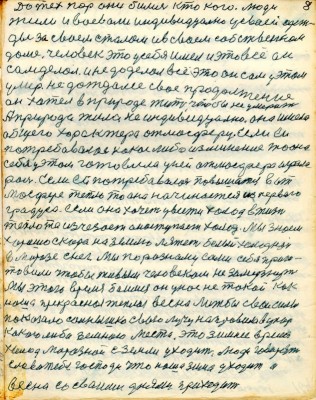 8
До тех пор они бились кто кого. Люди
жили и воевали индивидуально у своей одеж-
ды за своим столом и в своем собственном
доме. Человек это у себя имел и это все он
сам делал. и не доделал все это он сам у этом
умер не дождался свое продолжение
он хотел в природе жить чтобы не умирать
А природа жила не индивидуально, она имела
общего характера атмосферу. Если ей
потребовалося какое либо изменение то она
себя у этом готовила у ней атмосфера
Если ей потребовалося повышать в ат
мосфере тепло то она начинается из первого
градуса. Если она хочет увести холод в жизни
тепло то исчезает а наступает холод. Мы знаем
хорошо когда на землю ляжет белый холодный
в морозе снег. Мы по разному сами себя приго-
товили чтобы живым человекам не замерзнуть
Мы этого время боимся он у нас не такой как
наша прекрасная теплая весна лишь бы свои силы
показало солнышко своего лучу направило в упор
какого либо земного места, это зимнее время
холод морозной с земли уходит, люди говорят
слава тебе господи это наша зима уходит а
весна со своими днями приходит